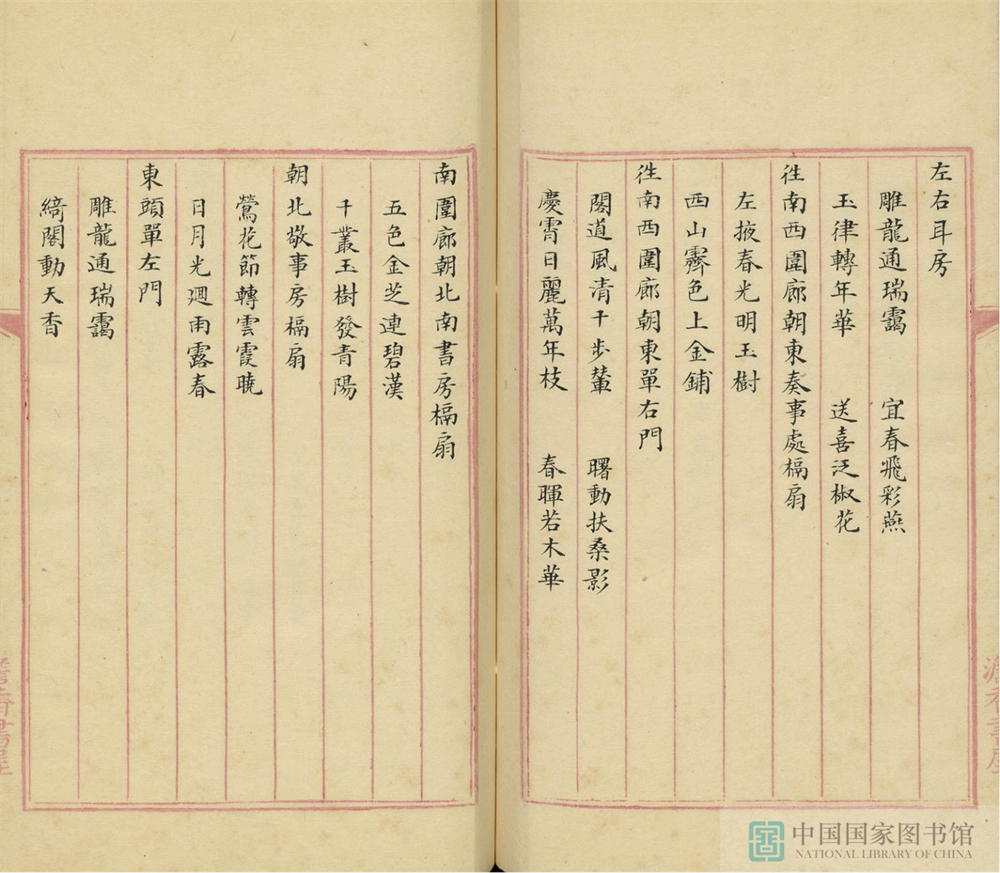 左右耳房
雕龍通瑞靄　宜春飛彩燕
玉律轉年華　送喜泛椒花
徃南西圍廊朝東奏事處槅扇
左掖春光明玉樹
西山霽色上金鋪
徃南西圍廊朝東單右門
閣道風清千步輦　曙動扶桑影
慶霄日麗萬年枝　春暉若木華
南圍廊朝北南書房槅扇
五色金芝連碧漢
千叢玉樹發青陽
朝北敬事房槅扇
鶯花節轉雲霞曉
日月光迴雨露春
東頭單左門
雕龍通瑞靄
綺閣動天香
中国国家图书馆
NATIONAL LIBRARY OF CHINA